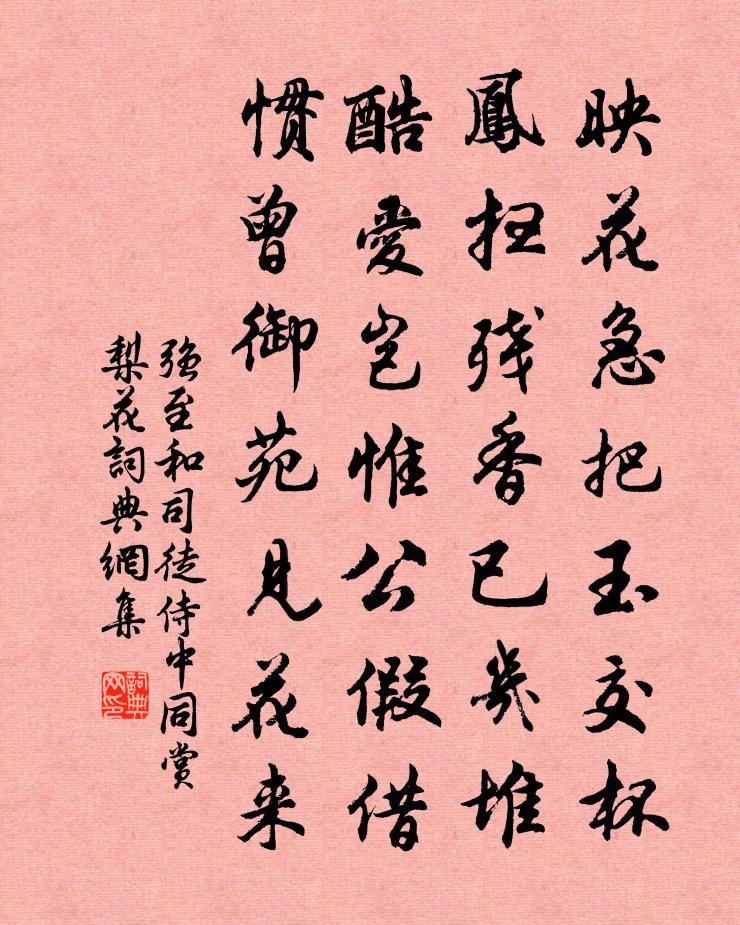 映花急把玉交杯
鳳扫残香已幾堆
酷愛岂惟公假借
惯曾御苑見花来
强至和司徒侍中同赏
梨花詞典網集
詞典网印